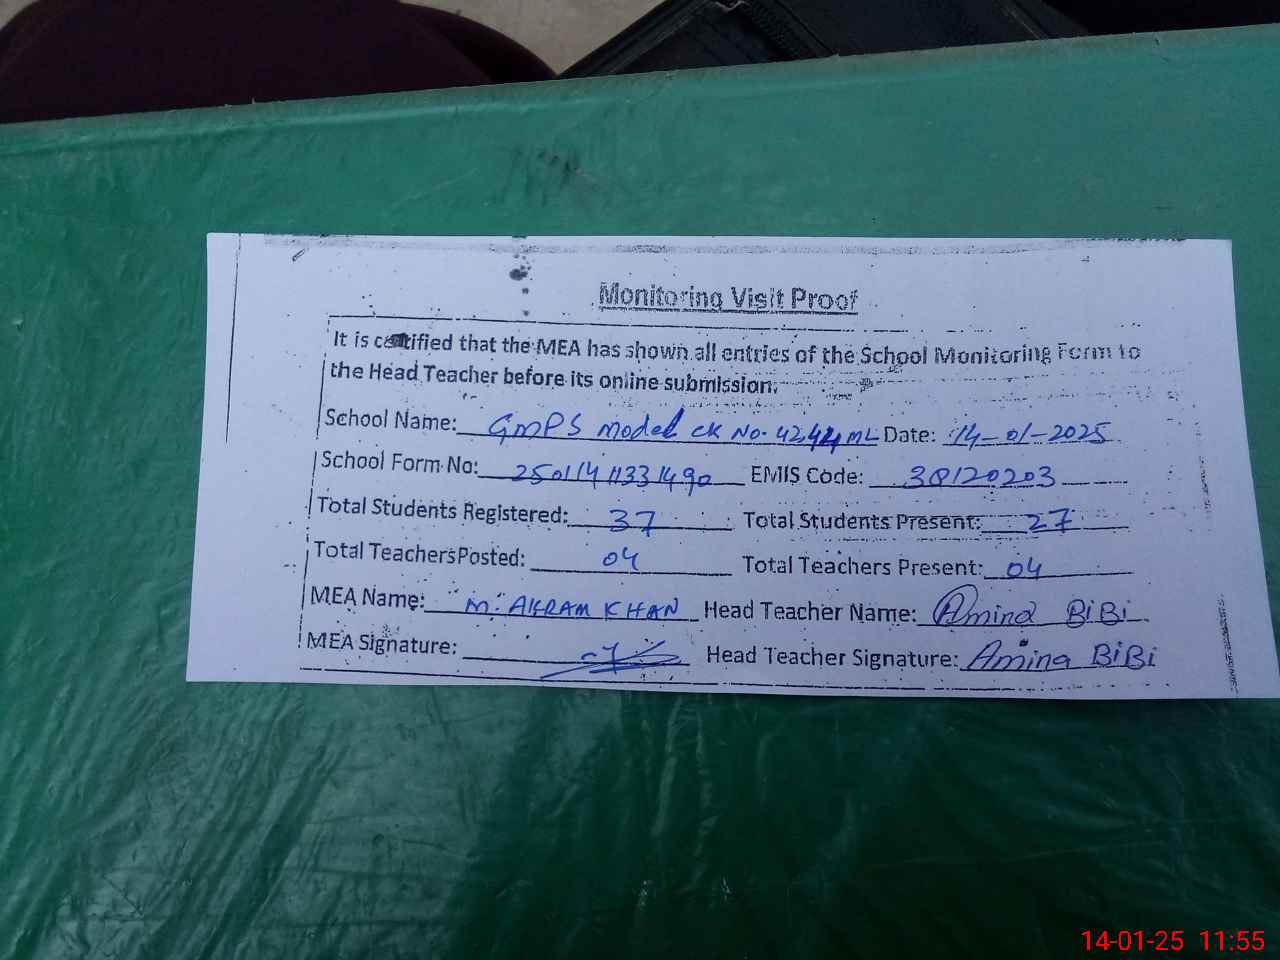 Monitoring Visit Proof
It is certified that the MEA has shown all entries of the School Monitoring Form to
the Head Teacher before its online submission.
School Name: GMPS Model CK No. 42,44 ML Date: 14-01-2025
School Form No: 25011411331490 EMIS Code: 38120203
Total Students Registered: 37 Total Students Present: 27
Total Teachers Posted: 04 Total Teachers Present: 04
MEA Name: M. AKRAM KHAN Head Teacher Name: Amina BiBi
MEA Signature: Head Teacher Signature: Amina BiBi
14-01-25 11:55